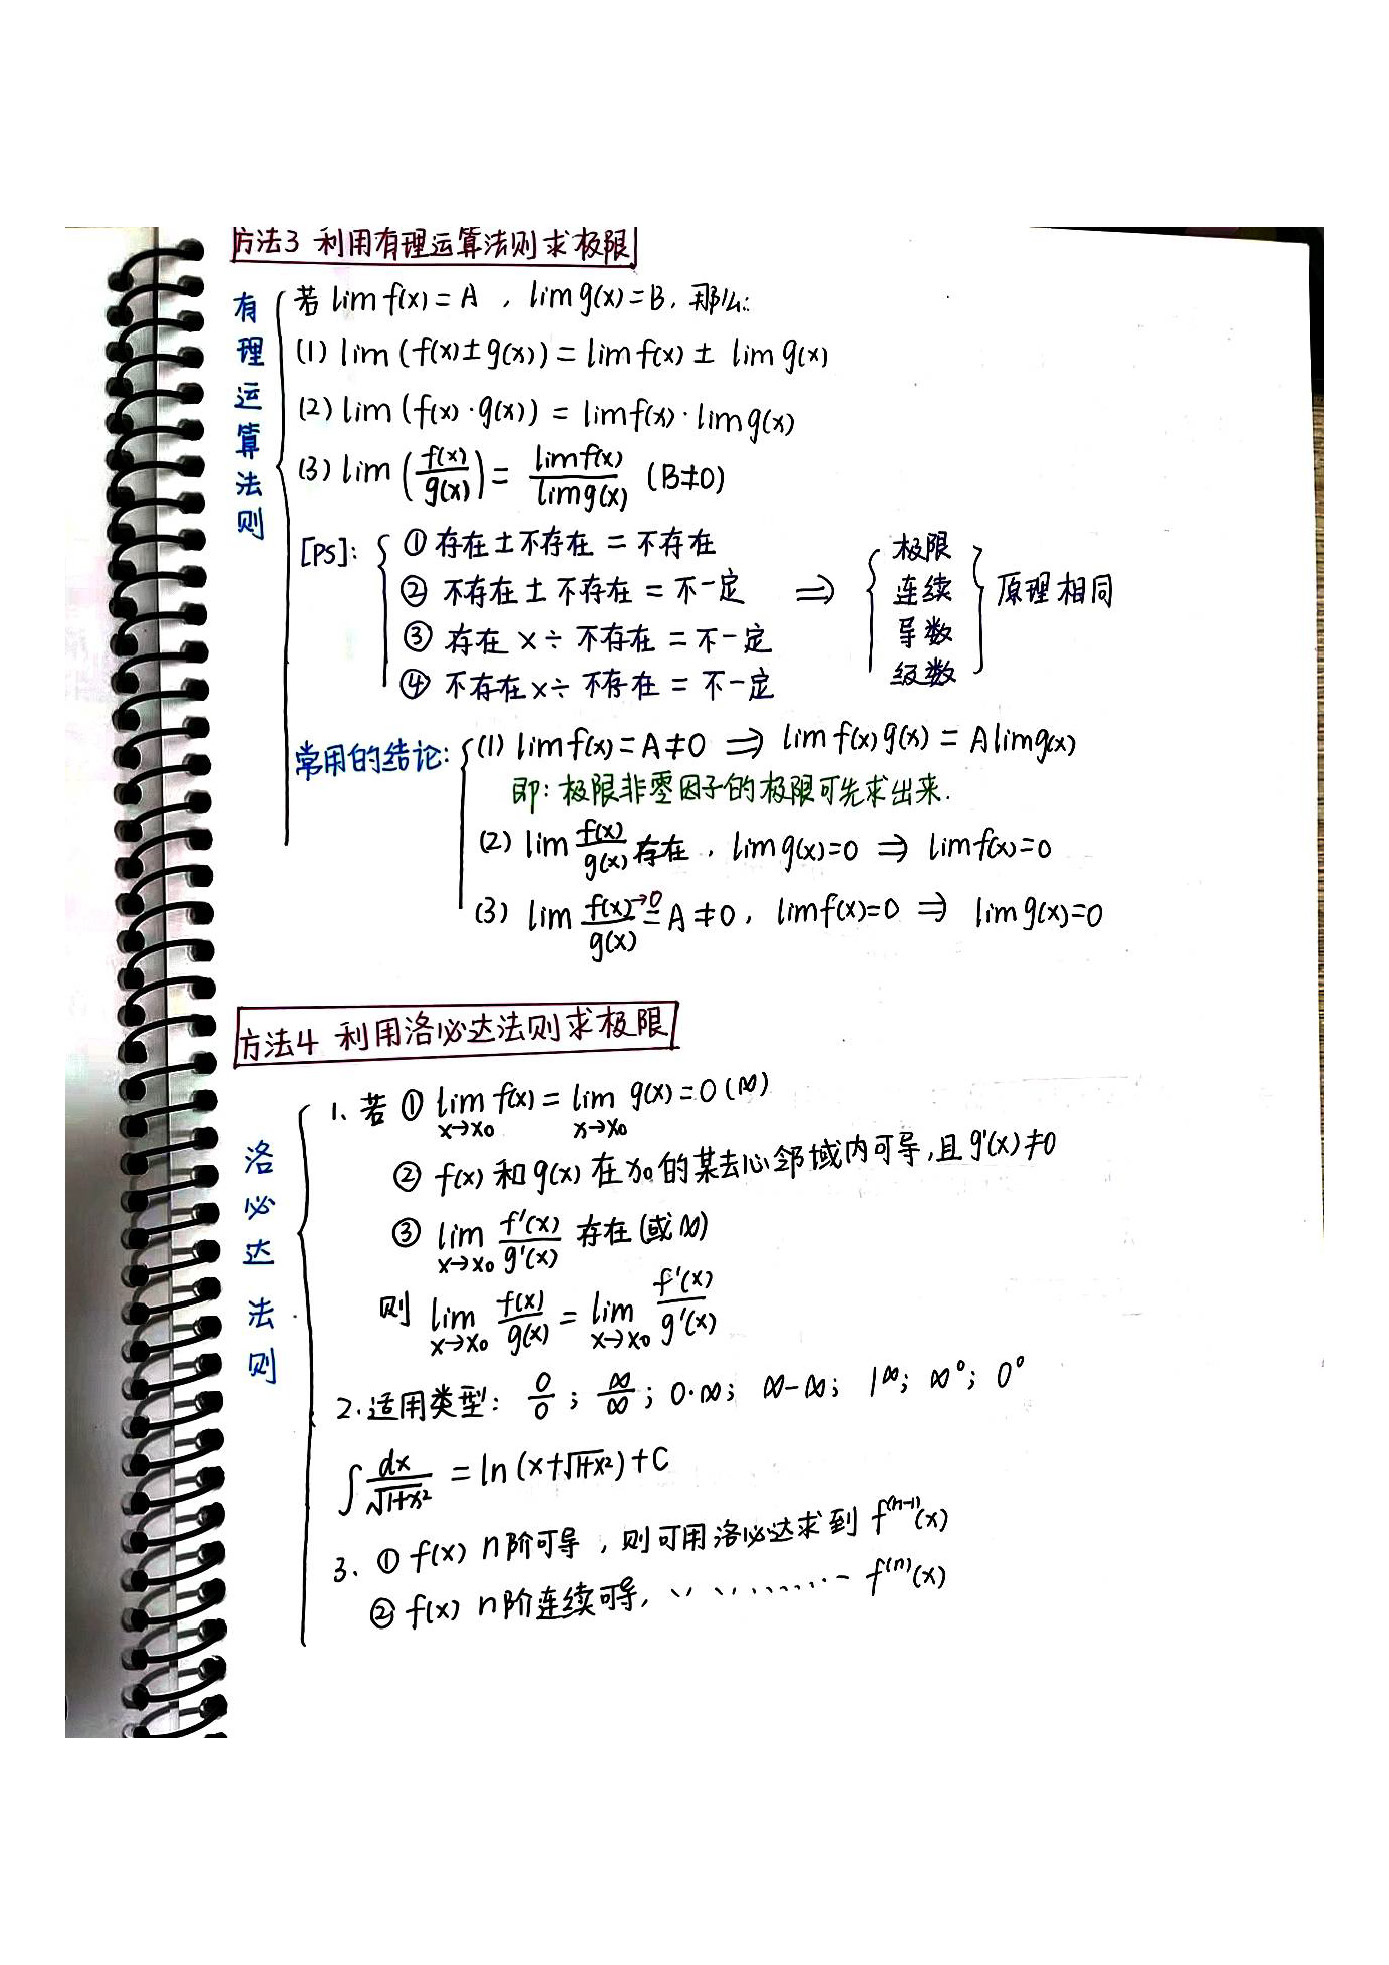 方法3 利用有理运算法则求极限
有理运算法则
若 lim f(x) = A , lim g(x) = B, 那么:
(1) lim (f(x) ± g(x)) = lim f(x) ± lim g(x)
(2) lim (f(x) · g(x)) = lim f(x) · lim g(x)
(3) lim (f(x)/g(x)) = lim f(x)/lim g(x) (B≠0)
[PS]: ① 存在 ± 不存在 = 不存在
② 不存在 ± 不存在 = 不一定
③ 存在 × ÷ 不存在 = 不一定
④ 不存在 × ÷ 不存在 = 不一定
⇒ 极限
连续
导数
级数
原理相同
常用的结论: (1) lim f(x) = A ≠ 0 ⇒ lim f(x) g(x) = A lim g(x)
即: 极限非零因子的极限可先求出来.
(2) lim f(x)/g(x) 存在, lim g(x)=0 ⇒ lim f(x)=0
(3) lim f(x)→0/g(x) = A ≠ 0, lim f(x)=0 ⇒ lim g(x)=0
方法4 利用洛必达法则求极限
洛必达法则
1、若 ① lim x→x₀ f(x) = lim x→x₀ g(x) = 0 (∞)
② f(x) 和 g(x) 在 x₀ 的某去心邻域内可导,且 g'(x) ≠ 0
③ lim x→x₀ f'(x)/g'(x) 存在 (或 ∞)
则 lim x→x₀ f(x)/g(x) = lim x→x₀ f'(x)/g'(x)
2. 适用类型: 0/0 ; ∞/∞ ; 0·∞; ∞-∞; 1^∞; ∞⁰; 0⁰
∫ dx/√(1+x²) = ln (x+√(1+x²)) + C
3、① f(x) n阶可导 , 则可用洛必达求到 f⁽ⁿ⁻¹⁾(x)
② f(x) n阶连续可导, 、、 、、......- f⁽ⁿ⁾(x)